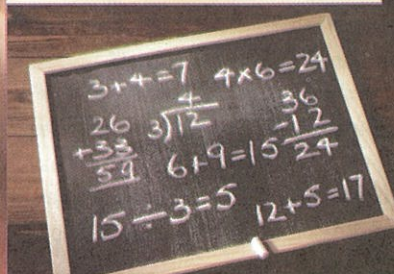 3+4=7 4×6=24
26
+33
59
4
3)12
36
-12
24
6+9=15
15÷3=5
12+5=17